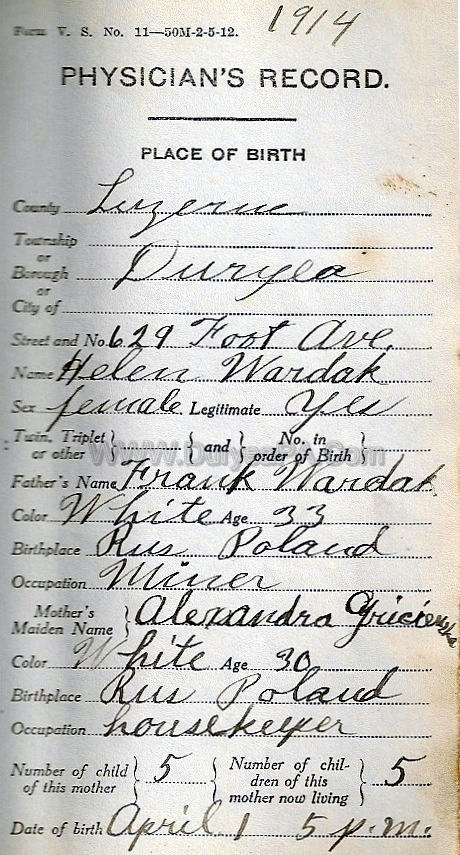 1914
Form V. S. No. 11—50M-2-5-12.
PHYSICIAN'S RECORD.
PLACE OF BIRTH
County Luzerne
Township
or
Borough Duryea
or
City of
Street and No. 629 Foot Ave.
Name Helen Wardak
Sex female Legitimate Yes
Twin, Triplet or other } { and } No. in order of Birth }
Father's Name Frank Wardak
Color White Age 33
Birthplace Rus Poland
Occupation Miner
Mother's Maiden Name } Alexandra
Color White Age 30
Birthplace Rus Poland
Occupation housekeeper
Number of child of this mother } 5 { Number of chil-
dren of this
mother now living } 5
Date of birth April 1 5 p.m.